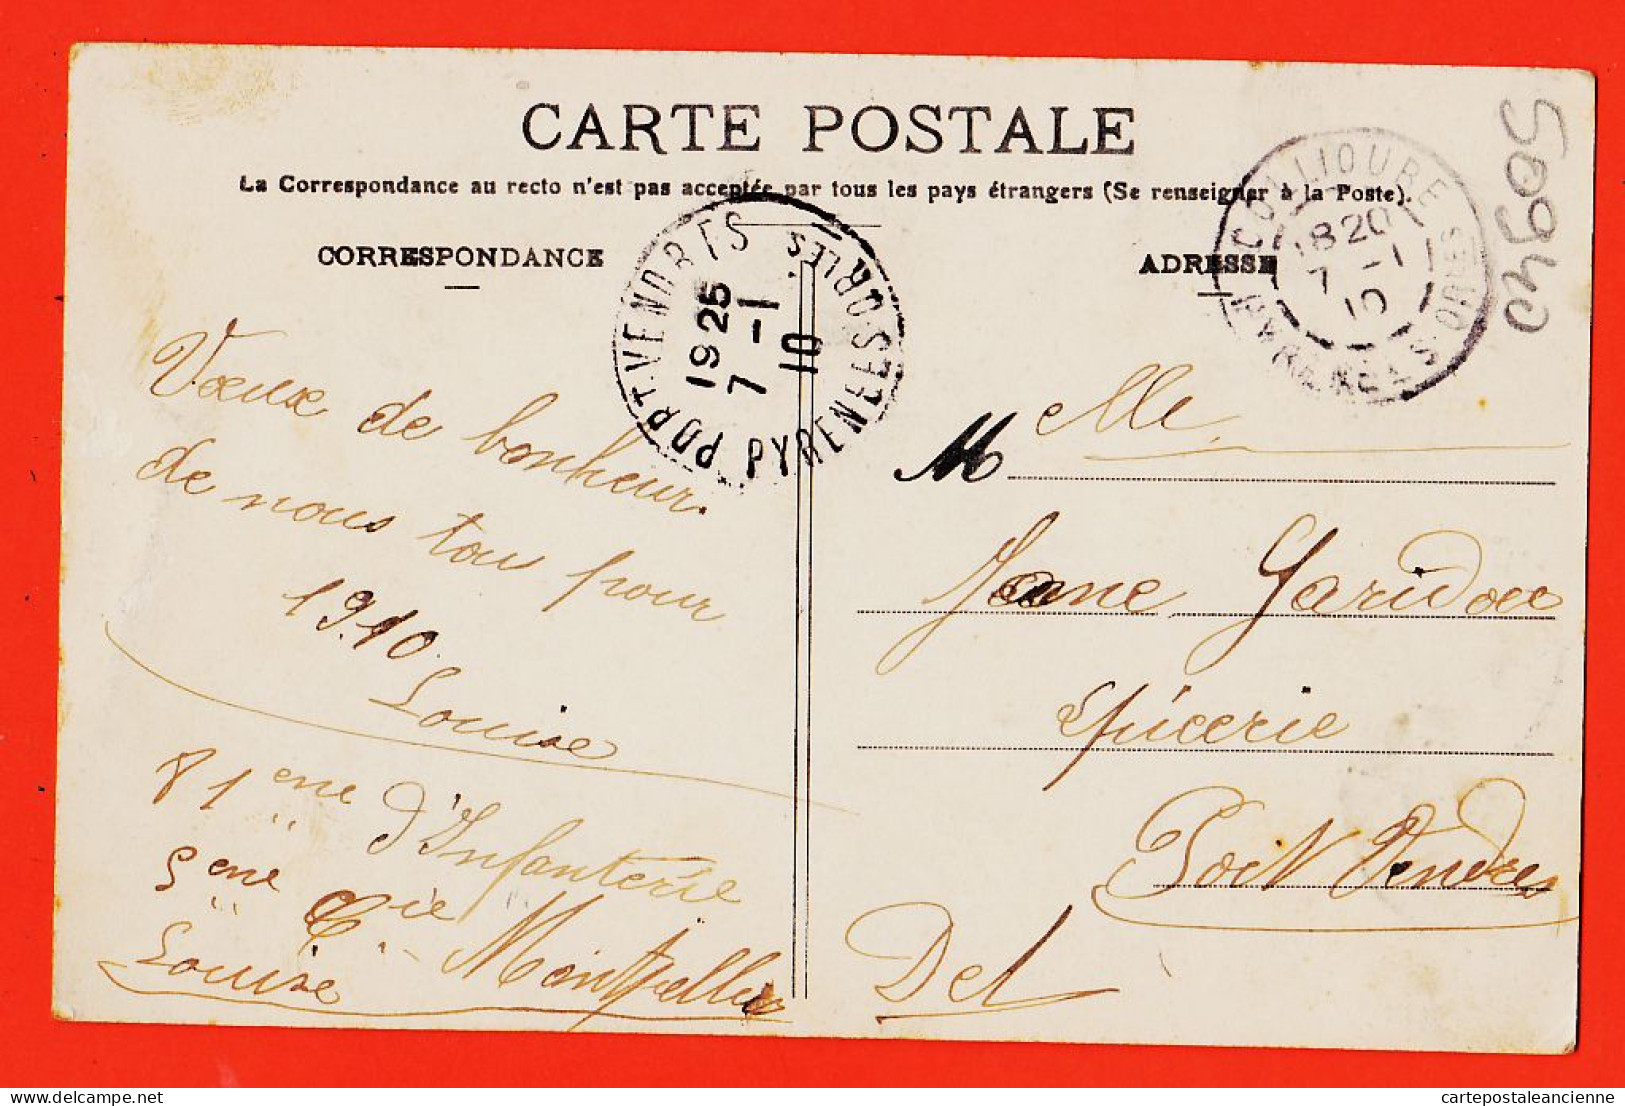 CARTE POSTALE
La Correspondance au recto n'est pas acceptée par tous les pays étrangers (Se renseigner à la Poste).
CORRESPONDANCE
ADRESSE
COLLIOURE
PYRENÉES ORLES
1820
7 - 1
10
PORT-VENDRES
PYRENEES ORLES
1925
7 - 1
10
50940
Vœux de bonheur
de nous tou pour
1910.
Louise
81eme d'Infanterie
5eme Cie Montpellier
Louise
M elle
Jeanne Garidou
Epicerie
Port Vendres
Del
cartepostaleancienne